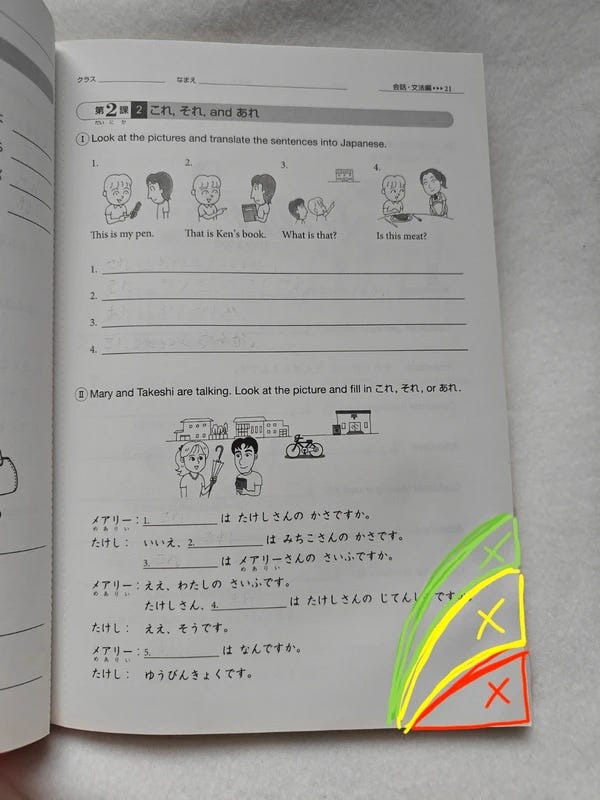 クラス なまえ 会話・文法編▸▸▸21
第2課 2 これ, それ, and あれ
だい に か
Ⅰ Look at the pictures and translate the sentences into Japanese.
1. 2. 3. 4.
This is my pen. That is Ken's book. What is that? Is this meat?
1.
2.
3.
4.
Ⅱ Mary and Takeshi are talking. Look at the picture and fill in これ, それ, or あれ.
メアリー:1. は たけしさんの かさですか。
めありい
たけし: いいえ、2. は みちこさんの かさです。
3. は メアリーさんの さいふですか。
めありい
メアリー: ええ、わたしの さいふです。
めありい
たけしさん、4. は たけしさんの じてんし ですか。
たけし: ええ、そうです。
メアリー:5. は なんですか。
めありい
たけし: ゆうびんきょくです。
X
X
X